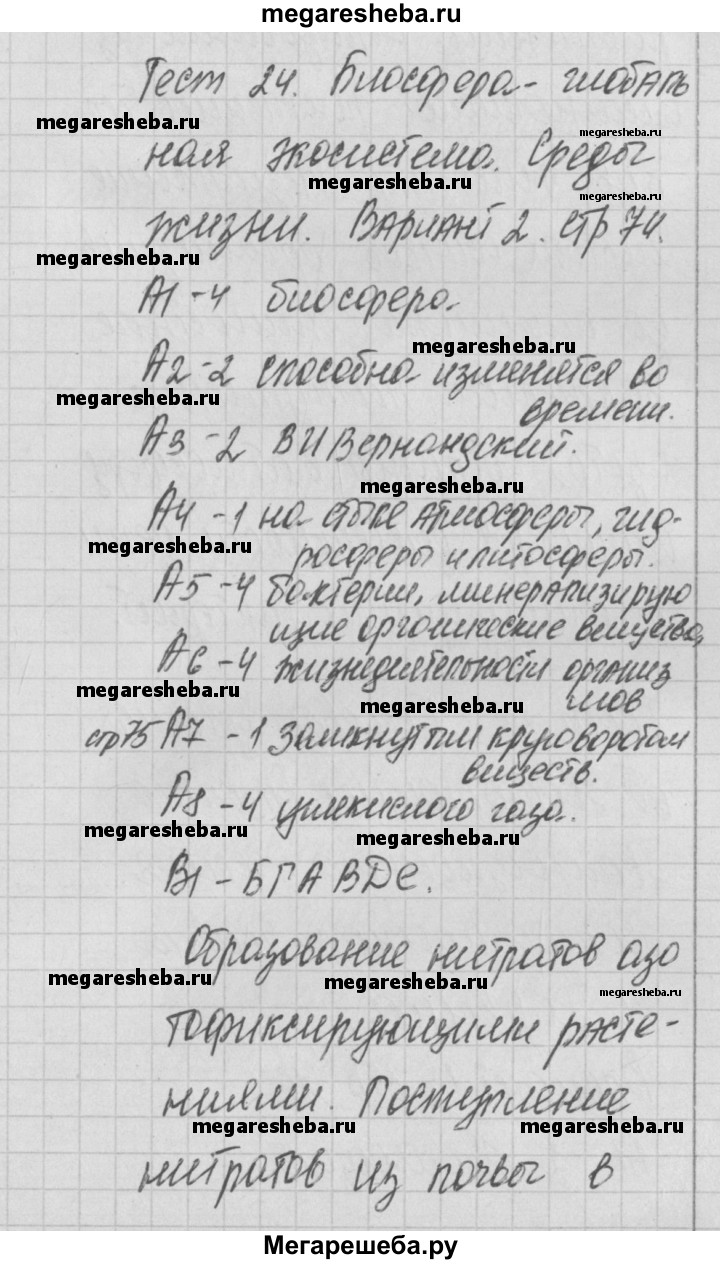 megaresheba.ru
Тест 24. Биосфера - глобаль
megaresheba.ru
megaresheba.ru
ная экосистема. Среды
megaresheba.ru
megaresheba.ru
жизни. Вариант 2. стр 74.
megaresheba.ru
А1 - 4 биосфера.
megaresheba.ru
А2 - 2 способна изменятся во
megaresheba.ru
времени.
А3 - 2 ВИ Вернандский.
megaresheba.ru
А4 - 1 на стыке атмосферы, гид-
megaresheba.ru
росферы и литосферы.
А5 - 4 бактерии, минерализирую
щие органические вещества,
А6 - 4 жизнедиятельности организ
megaresheba.ru
мов
megaresheba.ru
стр 75 А7 - 1 замкнутым круговоротом
веществ.
А8 - 4 углекислого газа.
megaresheba.ru
megaresheba.ru
В1 - БГАВДЕ.
Образование нитратов азо
megaresheba.ru
megaresheba.ru
megaresheba.ru
тофиксирующими расте-
ниями. Поступление
megaresheba.ru
megaresheba.ru
нитратов из почвы в
Мегарешеба.ру